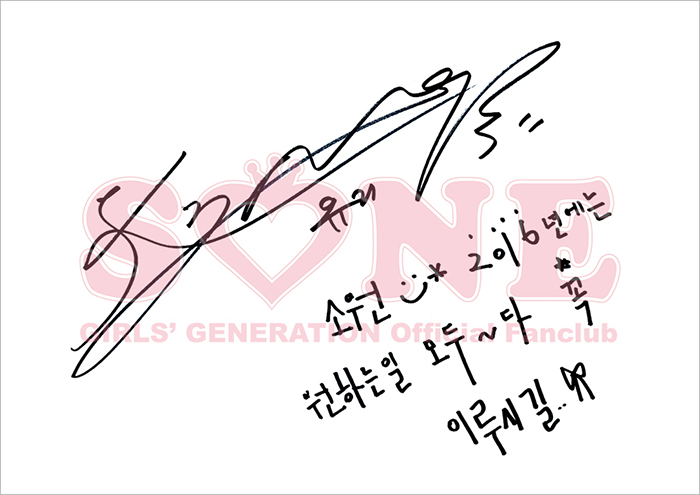 유리
SONE
GIRLS' GENERATION Official Fanclub
소원 :)* 2016년에는
원하는일 모두~다 *꼭
이루시길..